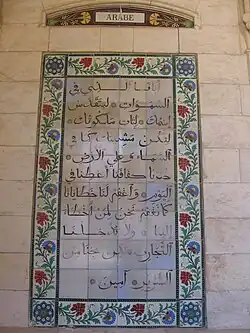 ARABE
أبانا الذي في
السموات * ليتقدس
اسمك * لتأت ملكوتك *
لتكن مشيئتك كما في
السماء وعلى الأرض *
خبزنا كفافنا أعطنا في
اليوم * واغفر لنا خطايانا
كما نغفر نحن لمن أخطأ
إلينا * ولا تدخلنا
التجارب لكن نجنا من
الشرير * آمين *